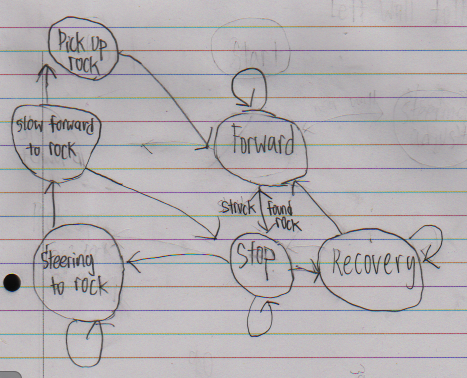 Pick up
rock
slow forward
to rock
Forward
struck
found
rock
Steering
to rock
Stop
Recovery